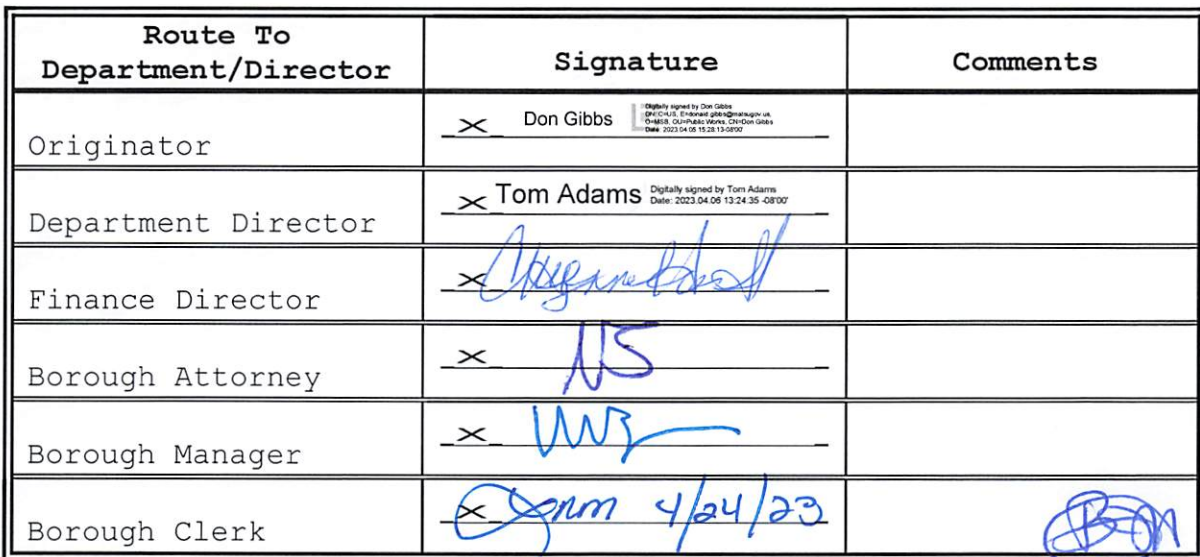 Route To
Department/Director
Signature
Comments
Originator
× Don Gibbs
Digitally signed by Don Gibbs
DN: C=US, E=donald.gibbs@matsugov.us,
O=MSB, OU=Public Works, CN=Don Gibbs
Date: 2023.04.05 15:28:13-08'00'
Department Director
× Tom Adams
Digitally signed by Tom Adams
Date: 2023.04.06 13:24:35 -08'00'
Finance Director
×
Borough Attorney
× NS
Borough Manager
×
Borough Clerk
× 4/24/23